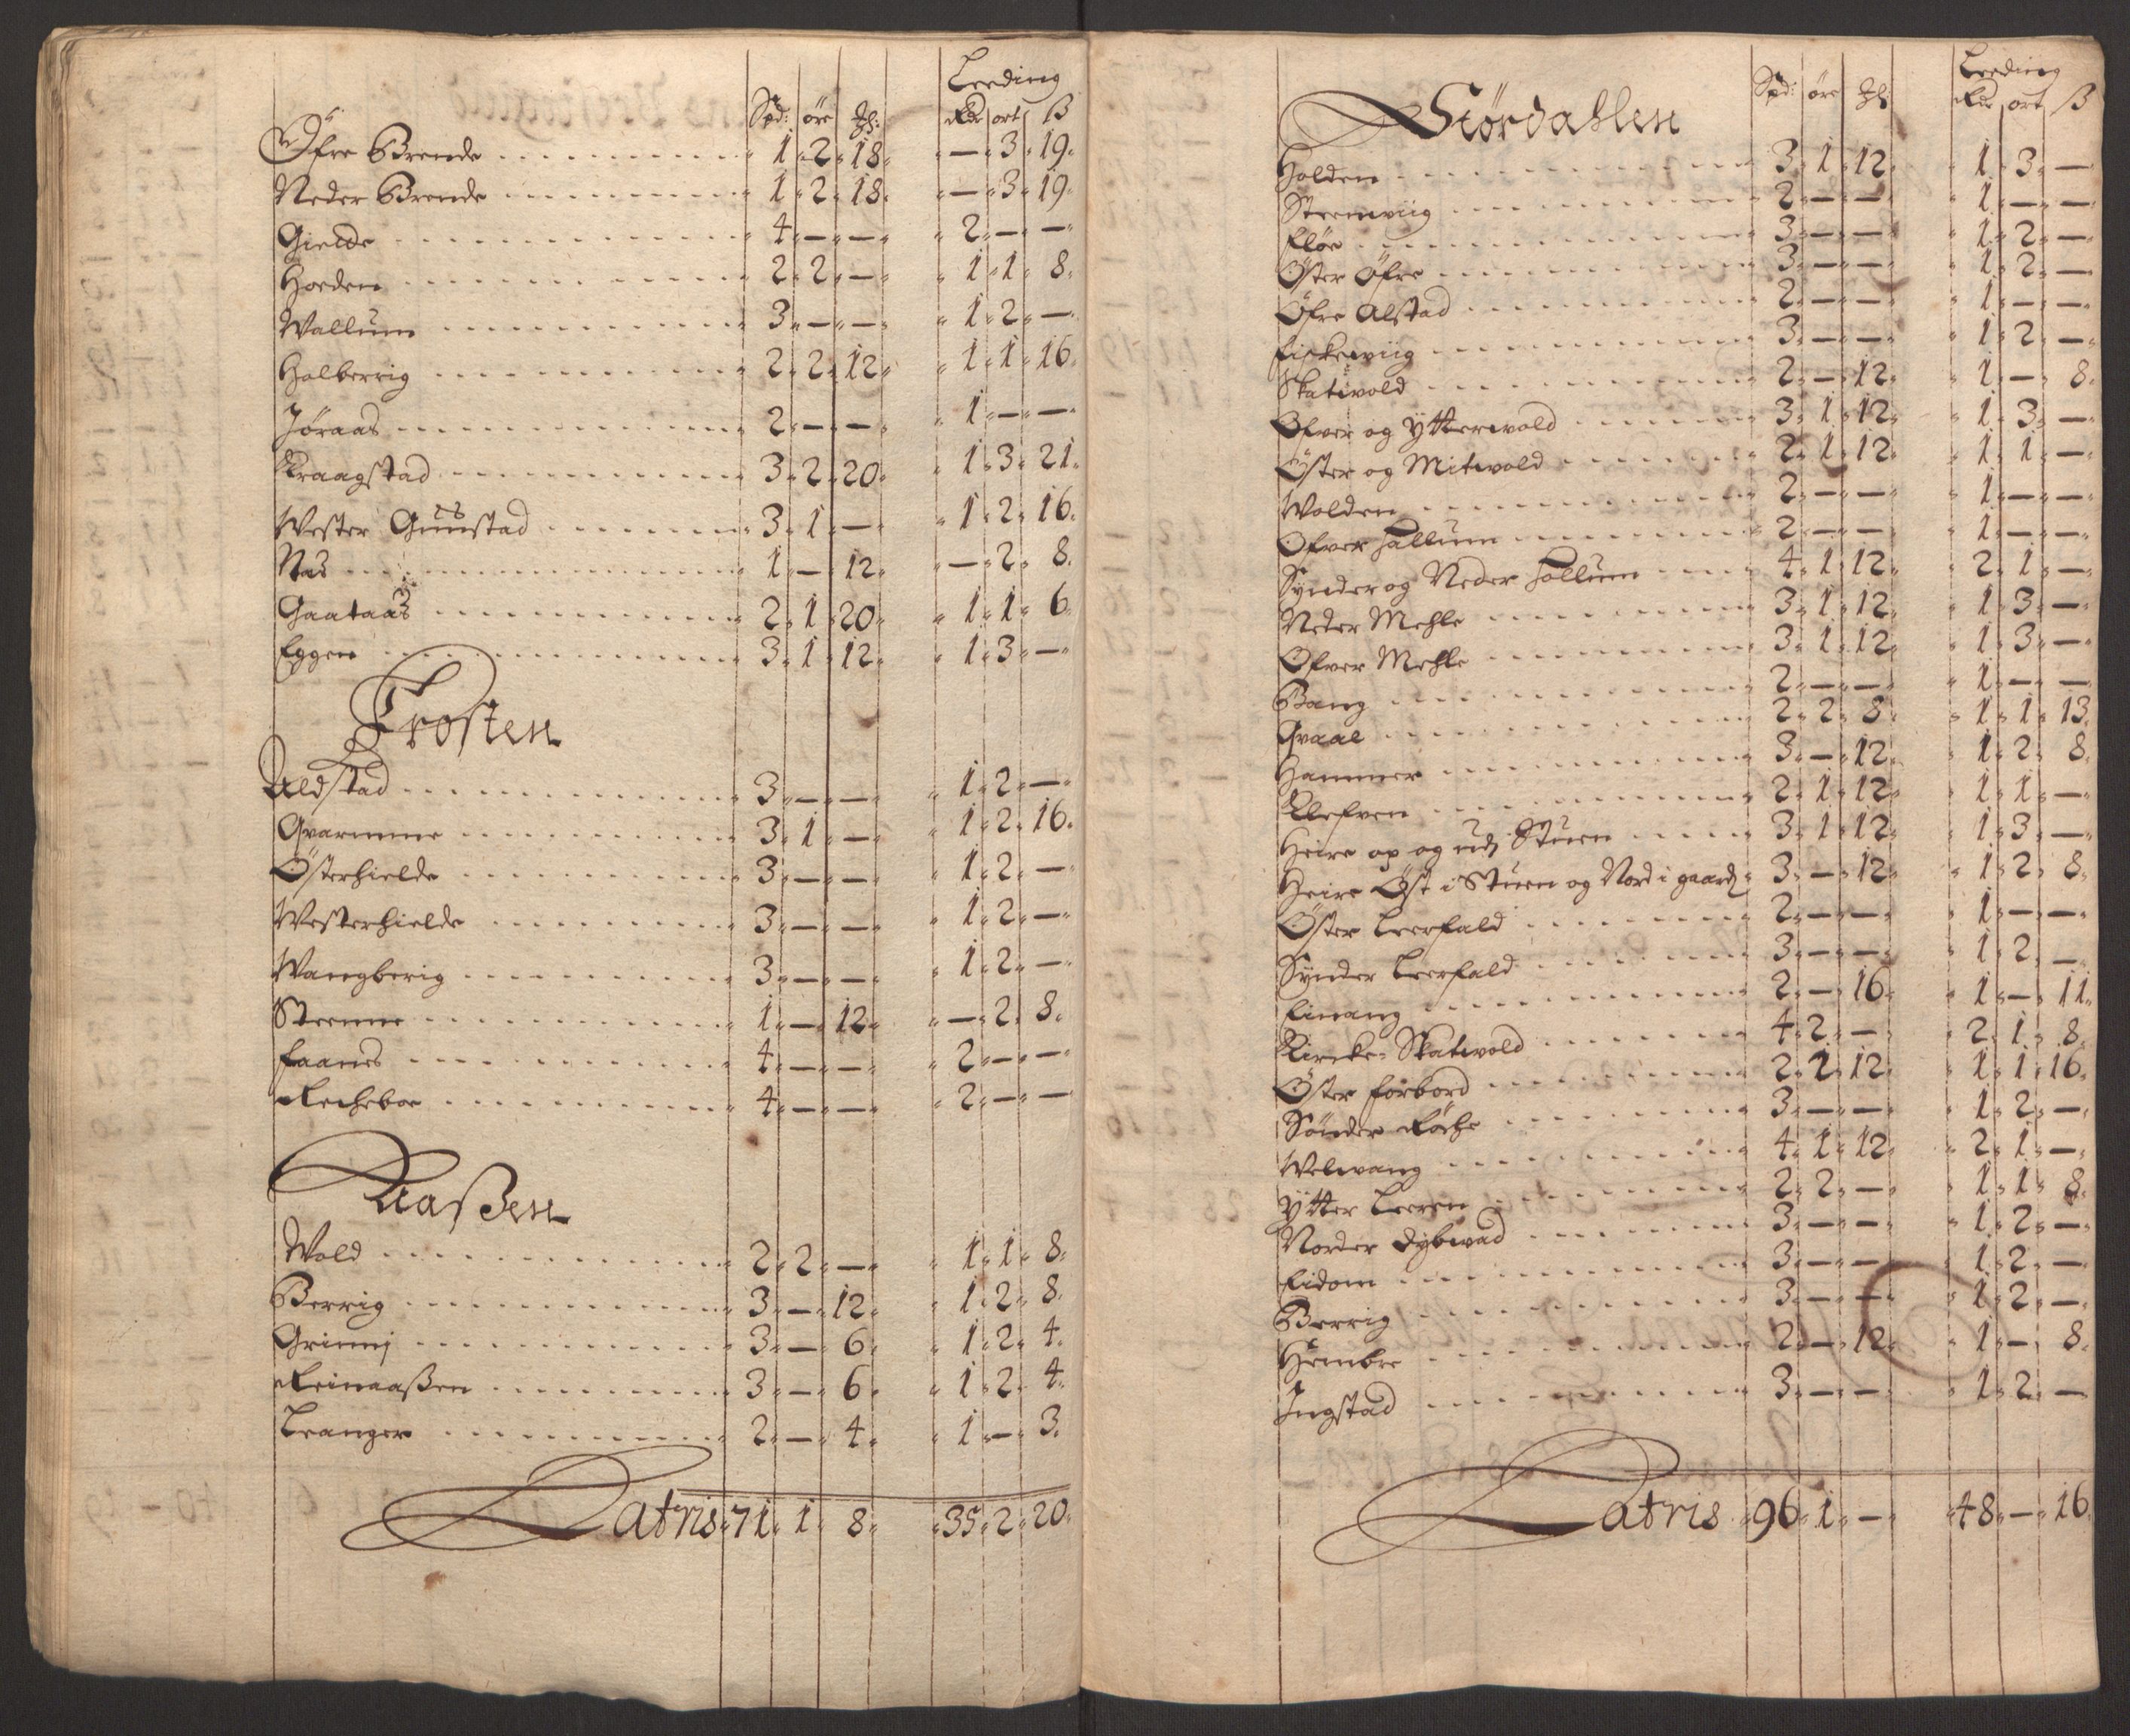 Leeding
Spd: öre Ʒl: Rdr ort ß
Øfre Brende 1. 2. 18. — 3. 19.
Neder Brende 1. 2. 18. — 3. 19.
Gielde 4. — — 2. — —
Horden 2. 2. — 1. 1. 8.
Wallum 3. — — 1. 2. —
Halberrig 2. 2. 12. 1. 1. 16.
Jøraas 2. — — 1. — —
Kraagstad 3. 2. 20. 1. 3. 21.
Wester Guustad 3. 1. — 1. 2. 16.
Nas 1. — 12. — 2. 8.
Gaataas 2. 1. 20. 1. 1. 6.
Eggen 3. 1. 12. 1. 3. —
Frosten
Aldstad 3. — — 1. 2. —
Qvamme 3. 1. — 1. 2. 16.
Østerhielde 3. — — 1. 2. —
Westerhielde 3. — — 1. 2. —
Wangberig 3. — — 1. 2. —
Steenne 1. — 12. — 2. 8.
Faanes 4. — — 2. — —
Recheboe 4. — — 2. — —
Aaßen
Wold 2. 2. — 1. 1. 8.
Berrig 3. — 12. 1. 2. 8.
Grinnj 3. — 6. 1. 2. 4.
Reinaaßen 3. — 6. 1. 2. 4.
Leanger 2. — 4. 1. — 3.
Latris 71. 1. 8. 35. 2. 20.
Leeding
Størdahlen Spd: öre Ʒl: Rdr ort ß
Holden 3. 1. 12. 1. 3. —
Steenwiig 2. — — 1. — —
Fløe 3. — — 1. 2. —
Øster Øfre 3. — — 1. 2. —
Øfre Alstad 2. — — 1. — —
Fiskewiig 3. — — 1. 2. —
Skatwold 2. — 12. 1. — 8.
Ofver og Ytterwold 3. 1. 12. 1. 3. —
Øster og Mitwold 2. 1. 12. 1. 1. —
Wolden 2. — — 1. — —
Ofver Hallum 2. — — 1. — —
Synder og Neder Hollum 4. 1. 12. 2. 1. —
Neder Mehle 3. 1. 12. 1. 3. —
Ofver Mehle 3. 1. 12. 1. 3. —
Bang 2. — — 1. — —
Qvaal 2. 2. 8. 1. 1. 13.
Hammer 3. — 12. 1. 2. 8.
Klefven 2. 1. 12. 1. 1. —
Heire op og udj Stuen 3. 1. 12. 1. 3. —
Heire Øst i Stuen og Nord i gaard 3. — 12. 1. 2. 8.
Øster Leerfald 2. — — 1. — —
Synder Leerfald 3. — — 1. 2. —
Einang 2. — 16. 1. — 11.
Kircke-Skatwold 4. 2. — 2. 1. 8.
Øster Forbord 2. 2. 12. 1. 1. 16.
Sönder Röche 3. — — 1. 2. —
Welwang 4. 1. 12. 2. 1. —
Ytter Leeren 2. 2. — 1. 1. 8.
Norder Dybwad 3. — — 1. 2. —
Eidom 3. — — 1. 2. —
Berrig 3. — — 1. 2. —
Hembre 2. — 12. 1. — 8.
Ingstad 3. — — 1. 2. —
Latris 96. 1. — 48. — 16.